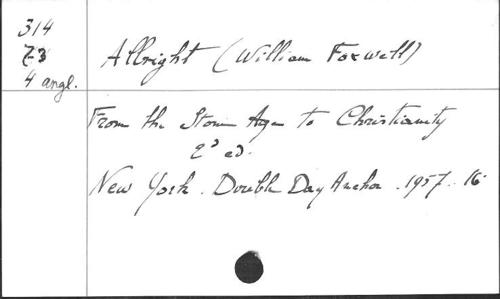 314
73
4 angl.
Allright (William Foxwell)
From the Stone Age to Christianity
2d ed.
New York. Double Day Anchor. 1957. 16